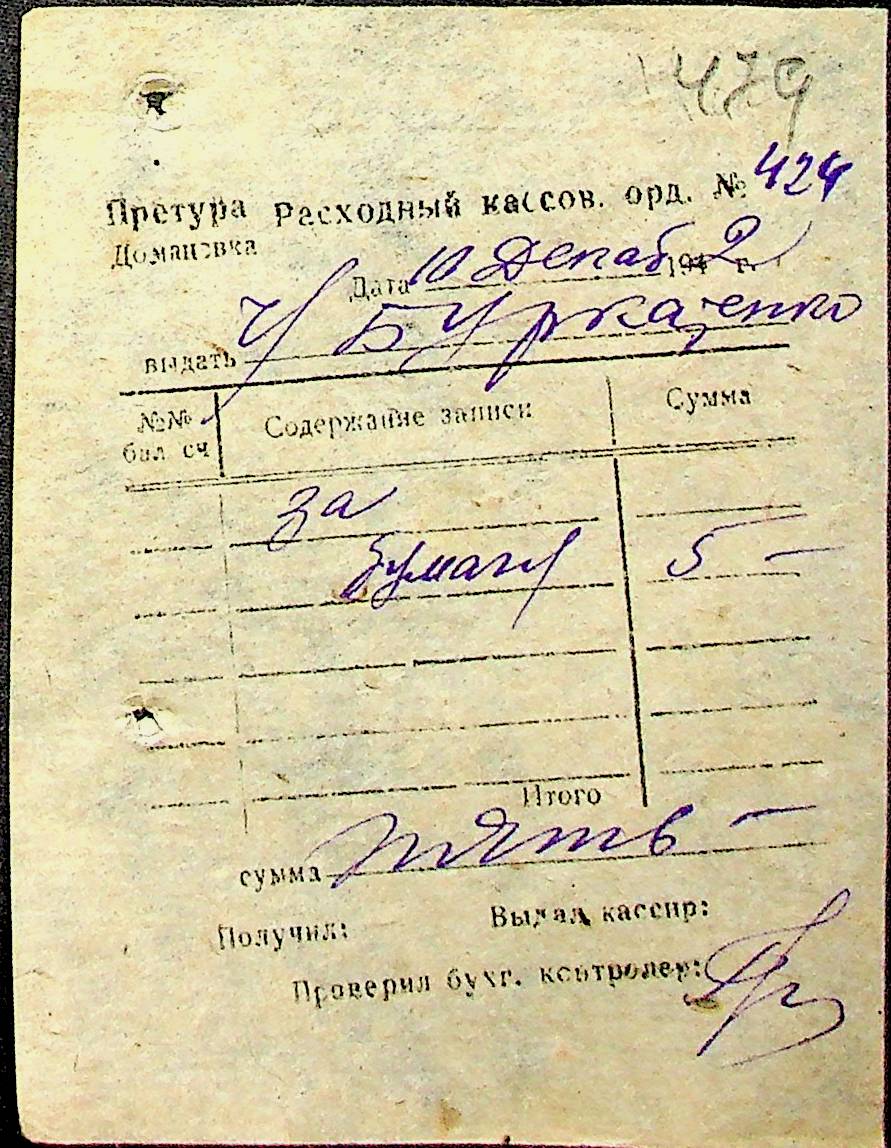 479
Претура Расходный кассов. орд. № 424
Домановка
Дата 10 Декаб 1942 г.
выдать У Буркаценко
№№ Содержание записи Сумма
бал сч
за
бумагу 5 —
Итого
сумма пять —
Получил: Выдал кассир:
Проверил бухг. контролер: